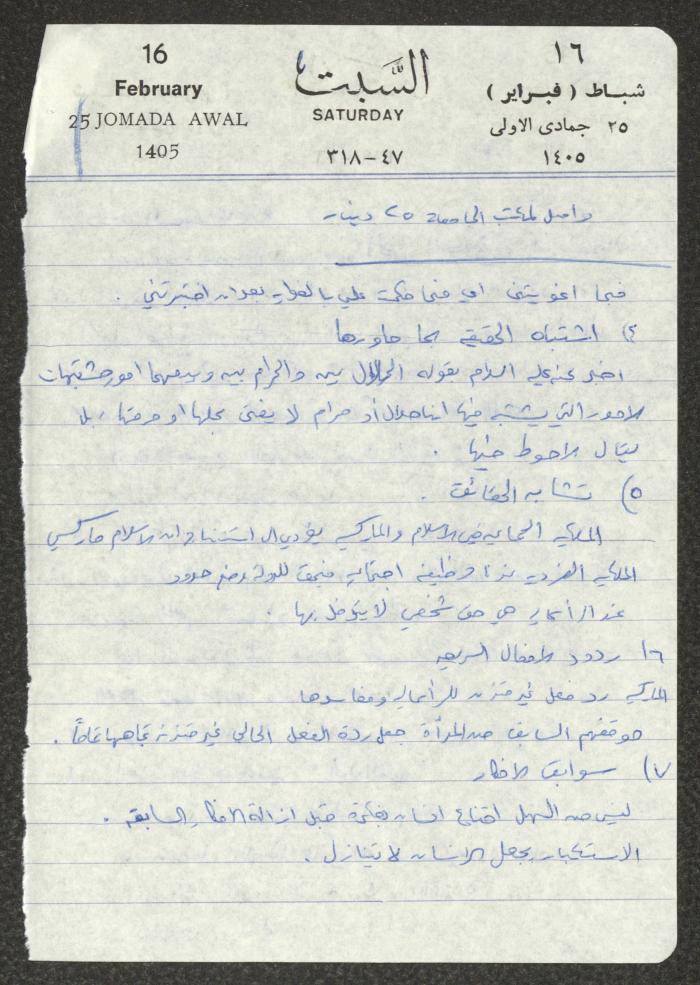 16
February
25 JOMADA AWAL
1405
السَّبت
SATURDAY
٤٧-٣١٨
١٦
شباط ( فبراير )
٢٥ جمادى الاولى
١٤٠٥
واصل لمكتب الجامعة ٢٥ دينار
فبما اغويتني اي فبما حكمت علي بالغواية بعد ان اختبرتني .
٤) اشتباه الحقيقة بما جاورها
عليه السلام بقوله الحلال بين والحرام بين وبينهما امور مشتبهات
الامور التي يشتبه فيها انها حلال أو حرام لا يفتى بحلها او حرمتها ، بل
يقال الاحوط فيها .
٥) تشابه الحقائق .
الملكية الجماعية في الاسلام والماركسية يؤدي الى استنتاج ان الاسلام ماركسي
الملكية الفردية وظيفة اجتماعية فيحق للدولة وضع حدود
عند الرأسمالية هي حق شخصي لا يتدخل بها .
٦) ردود الافعال السريعة
الماركسية رد فعل غير متزن للرأسمالية ومفاسدها
موقفهم السابق من المرأة جعل ردة الفعل الحالي غير متزنة تجاهها تماماً .
٧) سوابق الافكار
ليس من السهل اقناع انسان بفكرة قبل ازالة الافكار السابقة .
الاستكبار يجعل الانسان لا يتنازل .